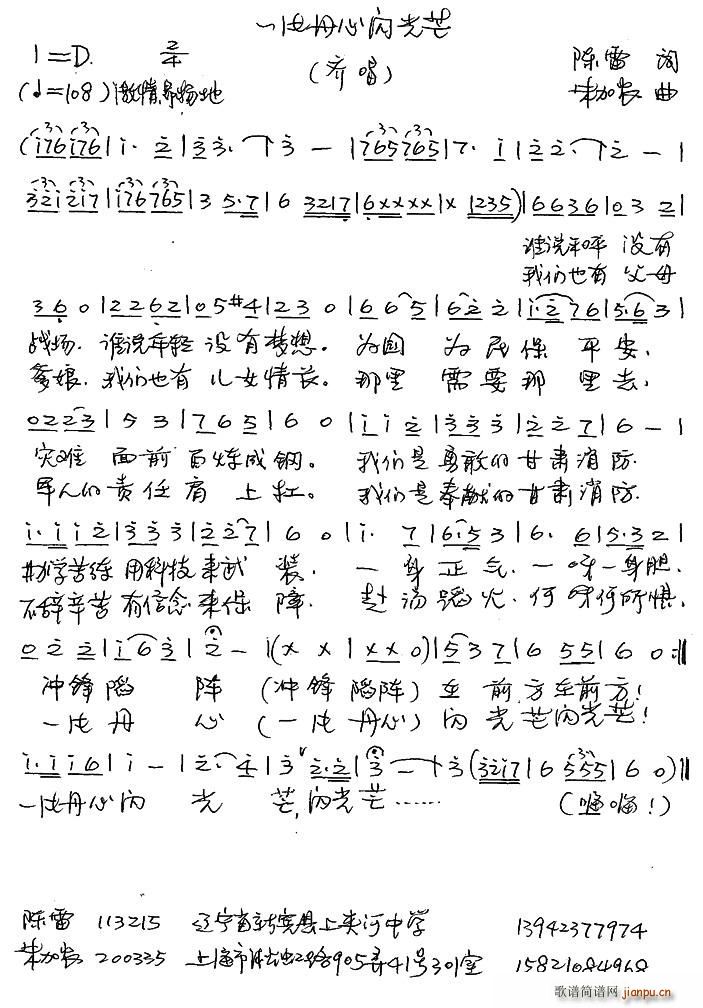 一片丹心闪光芒
1=D. 2/4
(齐唱)
陈雷 词
(♩=108) 激情昂扬地
曲
(i76 i76 | i· 2 | 3 3· | 3 — | 765 765 | 7· i | 2 2· | 2 — |
32i 2i7 | i76 765 | 3 5·7 | 6 3217 | 6xxxx | x 1235) | 6636 | 0 3 2 |
谁说和平 没有
我们也有 父母
3 6 0 | 2262 | 05 #4 | 2 3 0 | 6 6 5 | 6 2 2 | i·2 7 6 | 5·6 3 |
战场. 谁说年轻 没有梦想。 为国 为民保 平安,
爹娘. 我们也有 儿女情长。 那里 需要那 里去,
0223 | 5 3 | 7 6 5 | 6 0 | i i 2 | 3 3 3 | 2 2 7 | 6 — |
灾难 面前 百炼成钢。 我们是勇敢的甘肃消防.
军人的责任肩 上扛。 我们是奉献的甘肃消防.
i· i i 2 | 3 3 3 | 2 2 7 | 6 0 | i· 7 | 6·i 5 3 | 6· 6 | 5·3 2 |
勤学苦练 用科技来武 装, 一身正气.一呀一身胆.
不辞辛苦 有信念来保 障. 赴汤蹈火.何呀何所惧.
0 2 2 | i 6 3 | 2 — | (x x | x x 0) | 5 3 7 | 6 5 5 | 6 0 :‖
冲锋陷 阵 (冲锋陷阵) 在 前方在前方!
一片丹 心 (一片丹心) 闪 光芒闪光芒!
i· i i 6 | i — | 2· 4 | 3 2·2 | 3 — | 3 (32i7 | 6 555 | 6 0) ‖
一片丹心闪 光 芒,闪光芒…… (嗡嗡!)
陈雷 113215 辽宁省新宾县上夹河中学 13942377974
200335 上海市 905弄41号301室 15821084968
歌谱简谱网
jianpu.cn